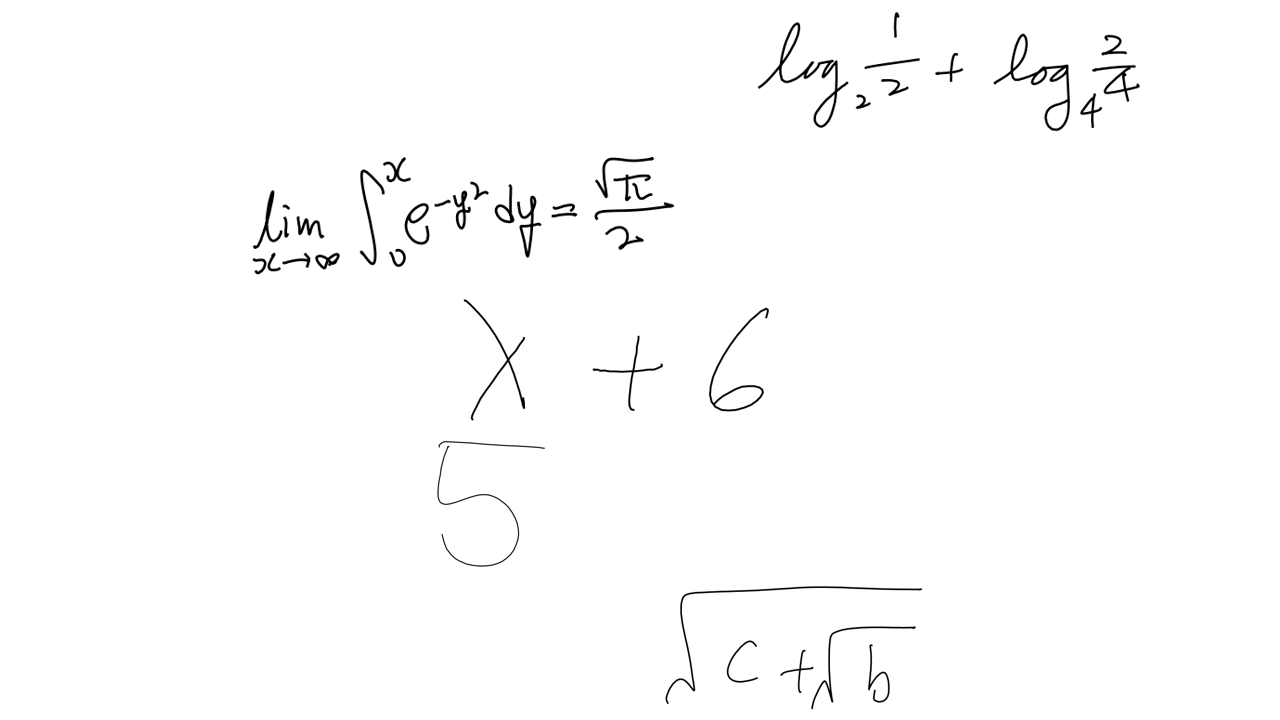 log₂ 1/2 + log₄ 2/4
lim x→∞ ∫₀ˣ e^(-y²) dy = √π/2
x + 6
5
√(c + √b)